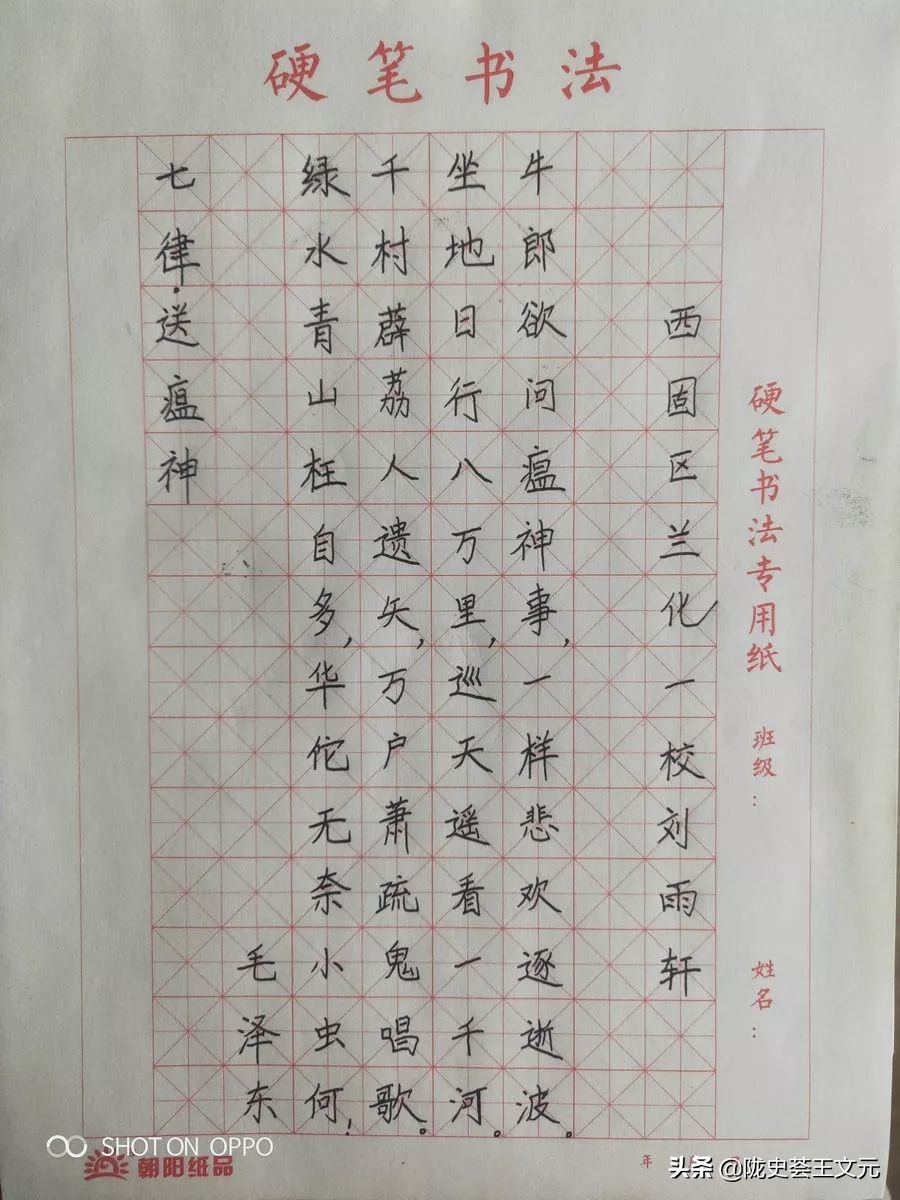 硬笔书法
七律·送瘟神
毛泽东
绿水青山枉自多,华佗无奈小虫何!
千村薜荔人遗矢,万户萧疏鬼唱歌。
坐地日行八万里,巡天遥看一千河。
牛郎欲问瘟神事,一样悲欢逐逝波。
西固区兰化一校刘雨轩
硬笔书法专用纸 班级: 姓名:
SHOT ON OPPO
朝阳纸品
年
头条@陇史荟王文元